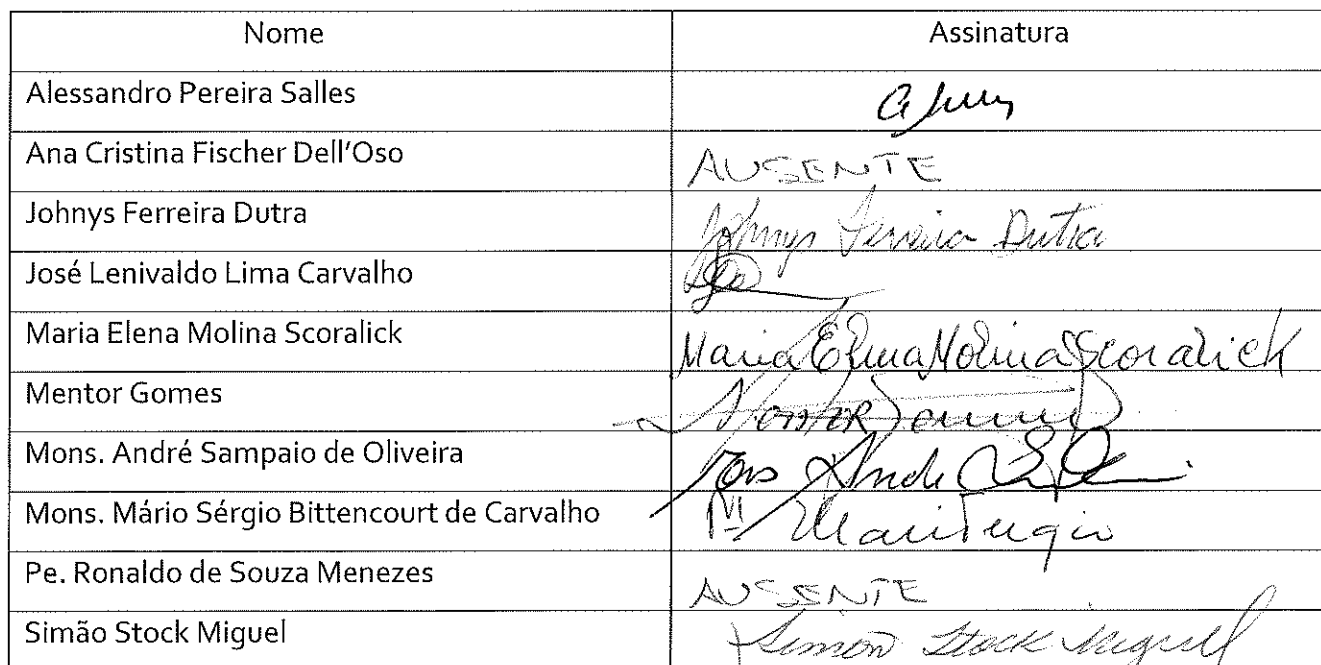 Nome Assinatura
Alessandro Pereira Salles
Ana Cristina Fischer Dell'Oso AUSENTE
Johnys Ferreira Dutra Johnys Ferreira Dutra
José Lenivaldo Lima Carvalho
Maria Elena Molina Scoralick Maria Elena Molina Scoralick
Mentor Gomes
Mons. André Sampaio de Oliveira Mons André
Mons. Mário Sérgio Bittencourt de Carvalho Mario Sergio
Pe. Ronaldo de Souza Menezes AUSENTE
Simão Stock Miguel Simon Stock Miguel